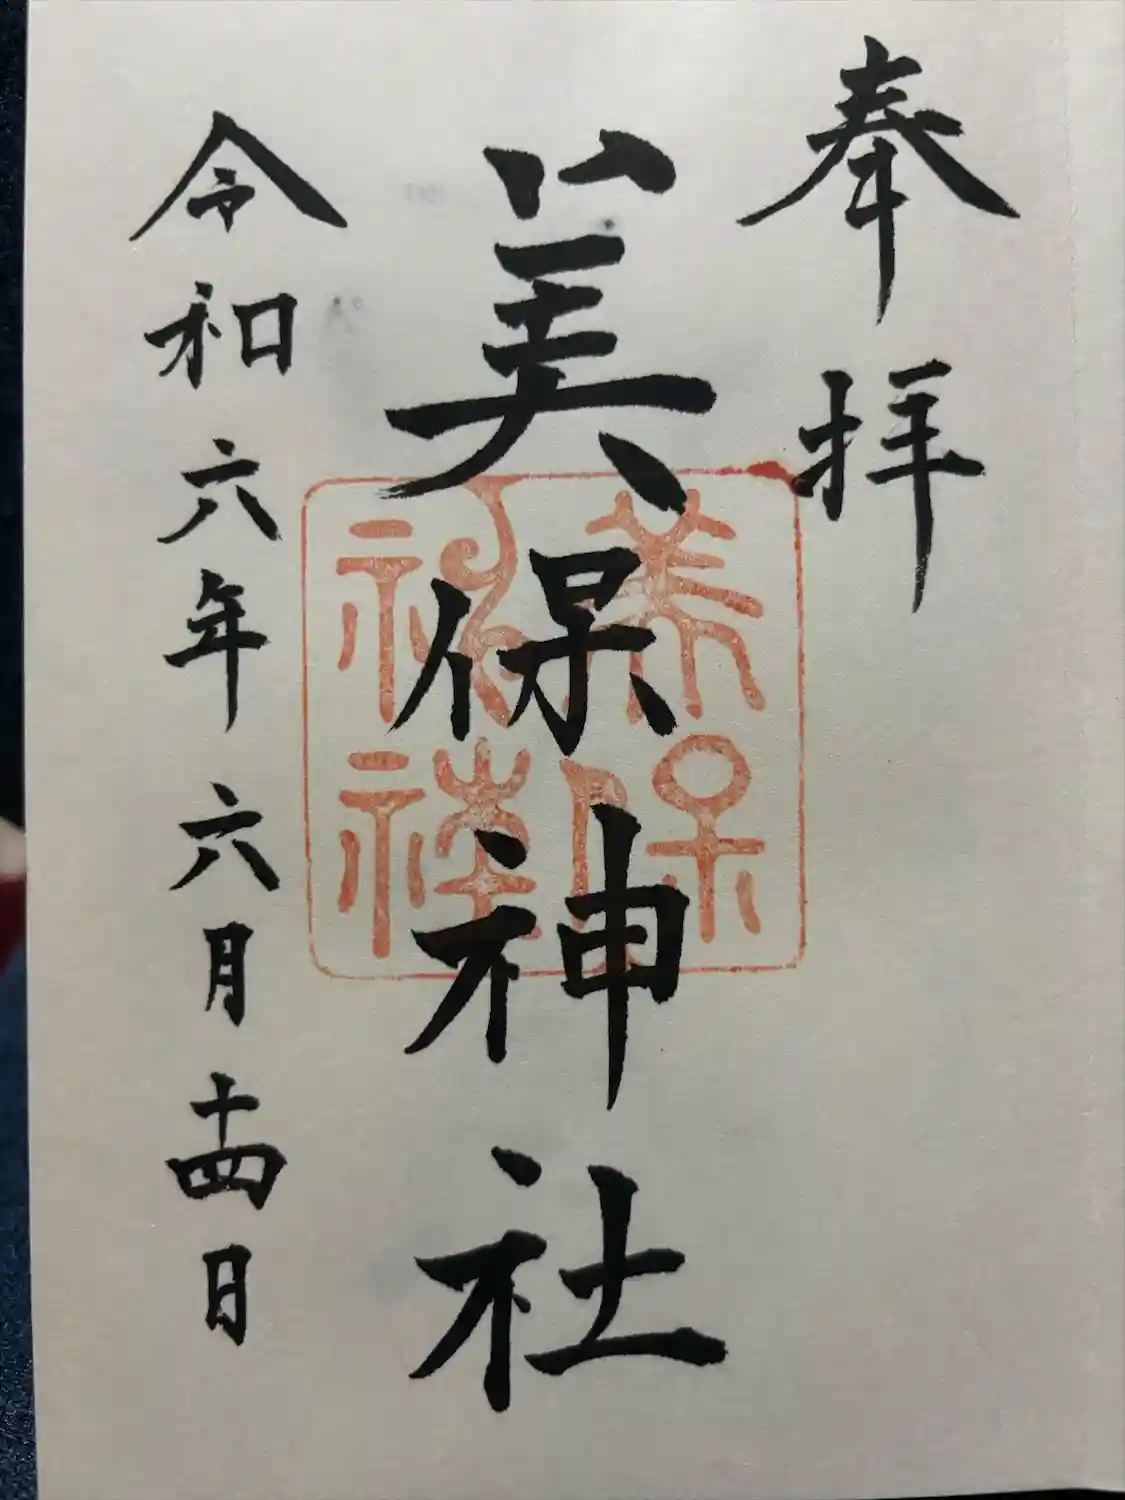 奉拝
美保神社
令和六年六月十四日
美保
神社